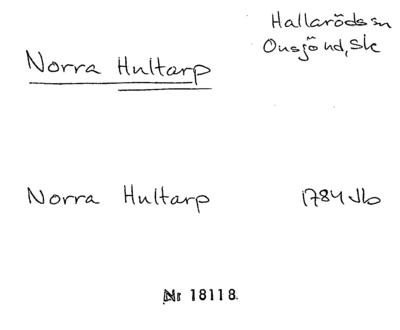 Hallaröds sn
Onsjö hd, Sk
Norra Hultarp
Norra Hultarp 1784 Jb
Nr 18118